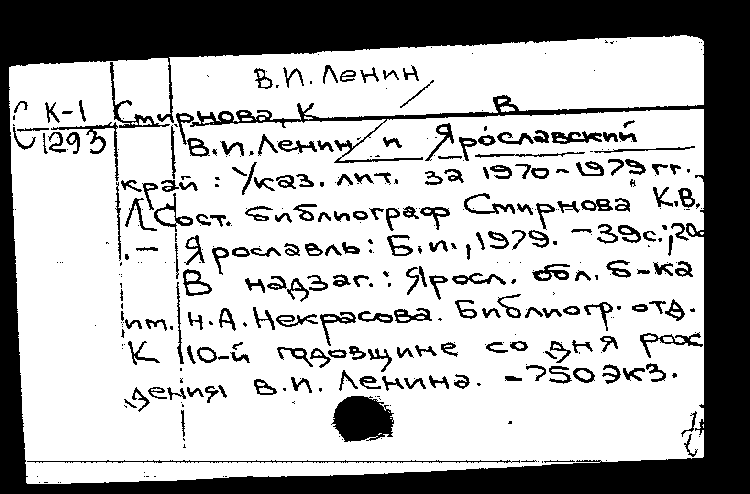 В.И. Ленин
К-1 Смирнова, К В
1293 В.И. Ленин и Ярославский
край : Указ. лит. за 1970-1979 гг.
/ Сост. библиограф Смирнова К.В.
. - Ярославль : Б.и., 1979. - 39с.; 20с
В надзаг.: Яросл. обл. б-ка
им. Н.А. Некрасова. Библиогр. отд.
К 110-й годовщине со дня рож
дения В.И. Ленина. - 750 экз.